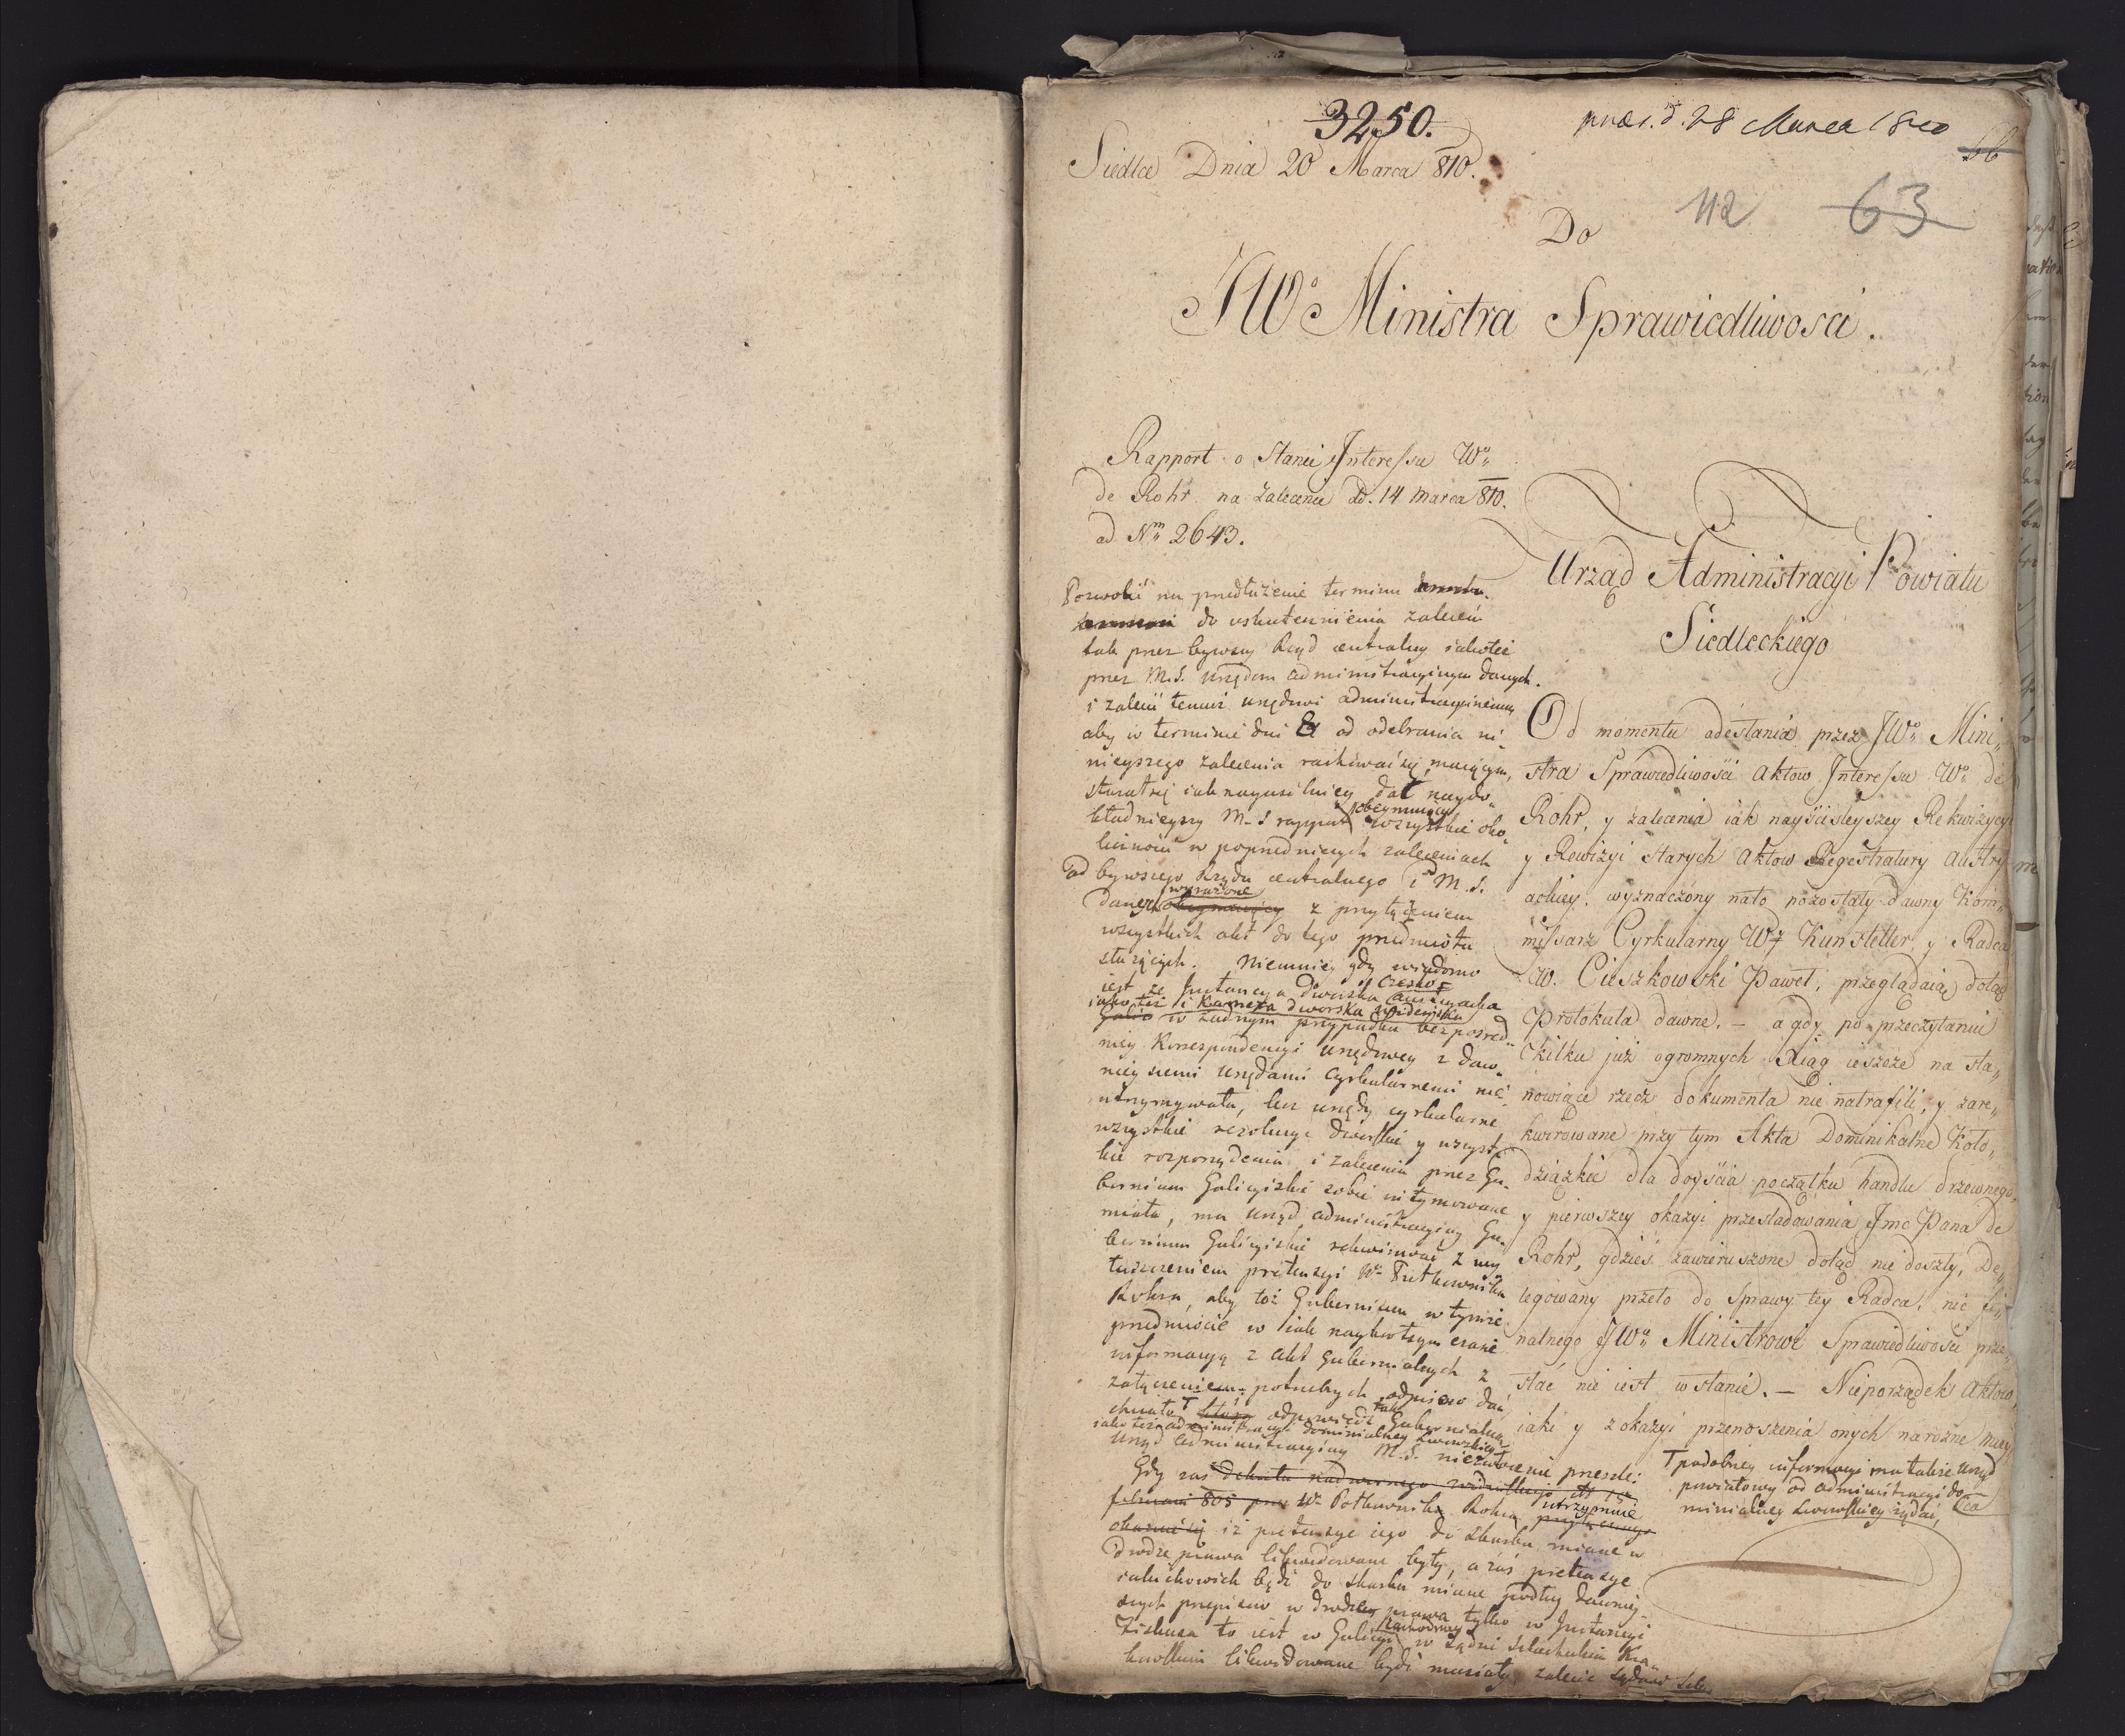 3250.
præs. d. 28 Marca 1810
66
Siedlce Dnia 20 Marca 810.
112 63
Do
JWo Ministra Sprawiedliwosci.
Rapport o Stanie Interessu Wo
de Rohr na zalecenie dd. 14 marca 810.
ad Nm 2643.
Urząd Administracyi Powiatu
Siedleckiego
Od momentu odesłania przez JWo Mini„
stra Sprawiedliwości aktow Interessu Wo de
Rohr, y zalecenia iak nayściśleyszey Rekwizycyi
y Rewizyi starych aktow Regestratury Austry
ackiey, wyznaczony nato pozostały dawny Kom„
missarz Cyrkularny W Kunstetter, y Radca
W. Cieszkowski Paweł, przeglądaią dotąd
Protokuła dawne. — a gdy po przeczytaniu
kilku już ogromnych Xiąg ieszcze na sta„
nowiące rzecz dokumenta nie natrafili, y zare„
kwirowane przy tym Akta Dominikalne Koło„
dziązkie dla doyścia początku handlu drzewnego,
y pierwszey okazyi przesladowania Jmc Pana de
Rohr, gdzieś zawieruszone dotąd nie doszły, De„
legowany przeto do Sprawy tey Radca, nic fi„
nalnego JWu Ministrowi Sprawiedliwosci prze„
słać nie iest wstanie. — Nieporządek Aktow,
iaki y z okazyi przenoszenia onych na rożne miey
Pozwolić na przedłużenie terminu
do uskutecznienia zaleceń
tak przez bywszy Rząd centralny iakoteż
przez M.S. urzędom administracyinym danych.
i zalecić temuż urzędowi administracyinemu
aby w terminie dni 8 od odebrania ni„
nieyszego zalecenia rachować się maiącym,
starał się iak nayusilniey dał naydo„
kładnieyszy M.S rapport obeymuiący wszystkie oko„
liczności w poprzedniczych zaleceniach
od bywszego Rządu centralnego i od M.S.
danych wyrażone obeymuiący z przyłączeniem
wszystkich akt do tego przedmiotu
służących. Niemniey gdy wiadomo
iest że Instancya dworska Czesko=
iako też i Kamera dworska wiedeńska
w żadnym przypadku bezpośred„
niey Korrespondencyi urzędowey z daw„
nieyszemi urzędami Cyrkularnemi nie
utrzymywała, lecz urzędy cyrkularne
wszystkie rezolucye dworskie y wszyst„
kie rozporządzenia i zalecenia przez Gu„
bernium Galicyiskie sobie intymowane
miała, ma urząd administracyiny Gu„
bernium Galicyiskie rekwirować z wy
łuszczeniem pretensyi Wo Pułkownika
Rohra, aby toż Gubernium w tymże
przedmiocie w iak naykrotszym czasie
informacyą z akt Gubernialnych z
załączeniem potrzebnych odpisow dać
chciało T odpowiedź tak Gubernialną
iako też administracyi dominialney Lwowskiey
urząd administracyiny M.S. niezwłocznie prześle:
T podobney informacyi ma także urząd
powiatowy od administracyi do„
minialney Lwowskiey żądać,
Gdy zaś Dekretu nadwornego
februarii 805 Wo Pułkownik Rohr utrzymuie
iż pretensye iego do skarbu miane w
drodze prawa likwidowane były, a zaś pretensye
iakichowich bądź do skarbu miane podług dawniey„
szych przepisow w drodze prawa tylko w Instancyi
Fiskusa to iest w Galicyi zachodniey w Sądzie Szlacheckim Kra„
kowskim likwidowane bydź musiały, zalecić